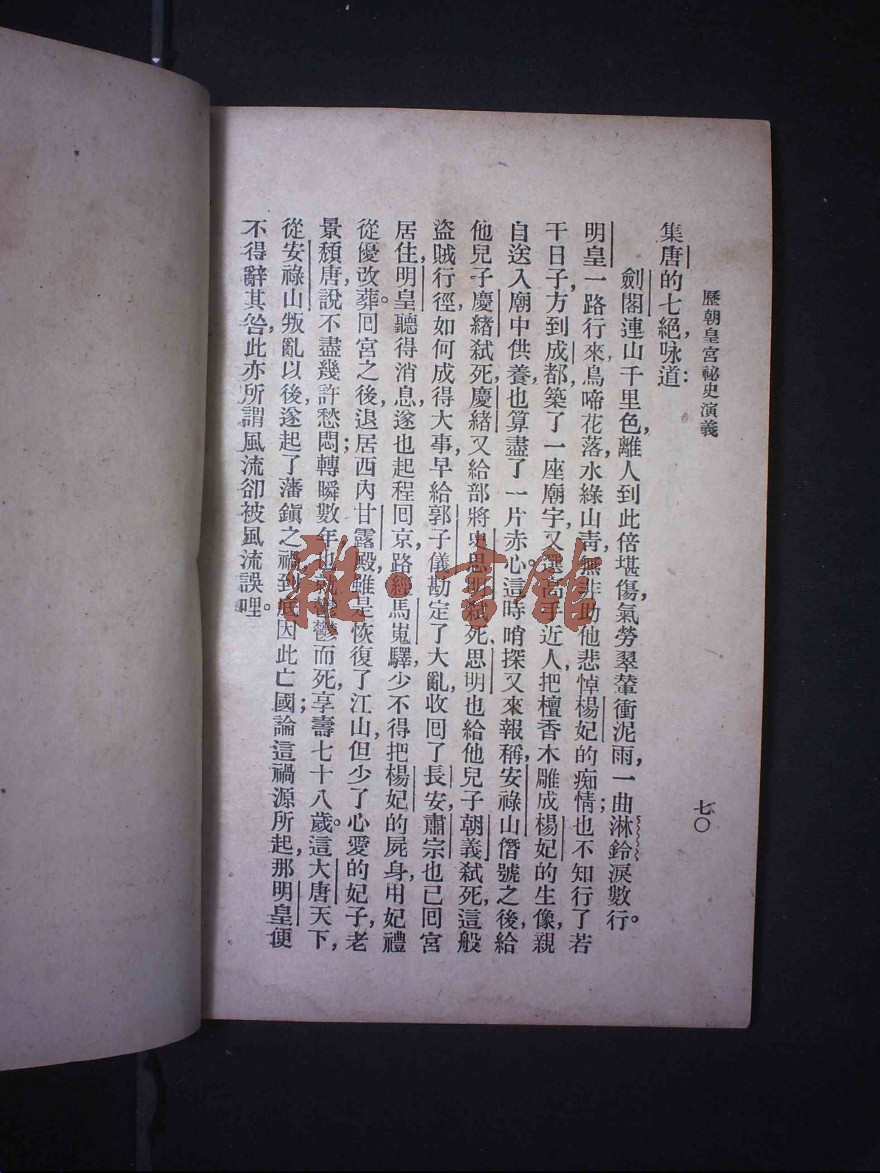 歷朝皇宮祕史演義
七〇
集唐的七絕咏道：
劍閣連山千里色，離人到此倍堪傷，氣勞翠輦衝泥雨，一曲淋鈴淚數行。
明皇一路行來，鳥啼花落，水綠山靑，無非助他悲悼楊妃的痴情；也不知行了若
干日子，方到成都，築了一座廟宇，又選高手近人，把檀香木雕成楊妃的生像，親
自送入廟中供養，也算盡了一片赤心。這時哨探又來報稱，安祿山僭號之後，給
他兒子慶緖弒死，慶緖又給部將史思明弒死、思明也給他兒子朝義弒死，這般
盜賊行徑，如何成得大事，早給郭子儀勘定了大亂，收回了長安，肅宗也已囘宮
居住，明皇聽得消息，遂也起程囘京，路經馬嵬驛，少不得把楊妃的屍身，用妃禮
從優改葬。囘宮之後，退居西內甘露殿，雖是恢復了江山，但少了心愛的妃子，老
景頹唐，說不盡幾許愁悶；轉瞬數年，也就鬱鬱而死，享壽七十八歲。這大唐天下，
從安祿山叛亂以後，遂起了藩鎭之禍，到底因此亡國；論這禍源所起，那明皇便
不得辭其咎，此亦所謂風流卻被風流誤哩。
雜·書館